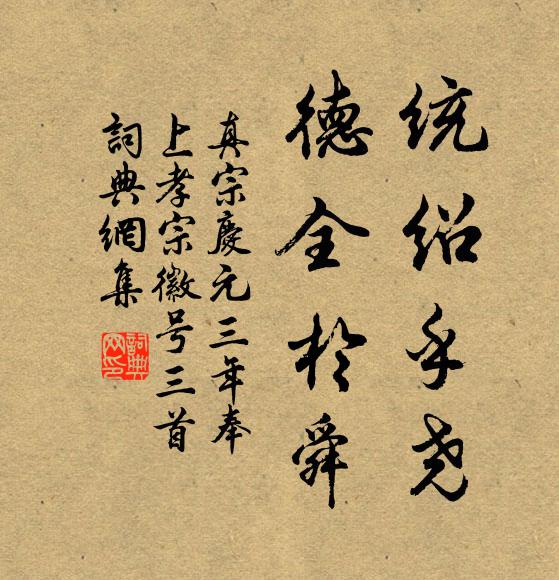 统绍乎尧
德全於舜
真宗慶元三年奉
上孝宗徽号三首
詞典網集
詞典
网印